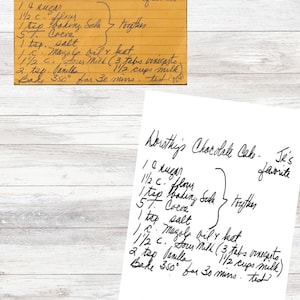 1 c sugar
1½ c. flour
1 tsp baking soda
5 T. Cocoa
1 tsp. salt
together
1 c. Mazola oil & heat
1½ c. Sour Milk (3 tabs vinegar to
2 tsp Vanilla 1½ cups milk)
Bake 350° for 30 mins. test?
Dorothy's Chocolate Cake - Jk's
favorite
1 c sugar
1½ c. flour
1 tsp baking soda
5 T Cocoa
1 tsp salt
together
1 c. Mazola oil & heat
1½ c. Sour Milk (3 tabs vinegar to
2 tsp Vanilla 1½ cups milk)
Bake 350° for 30 mins. test?